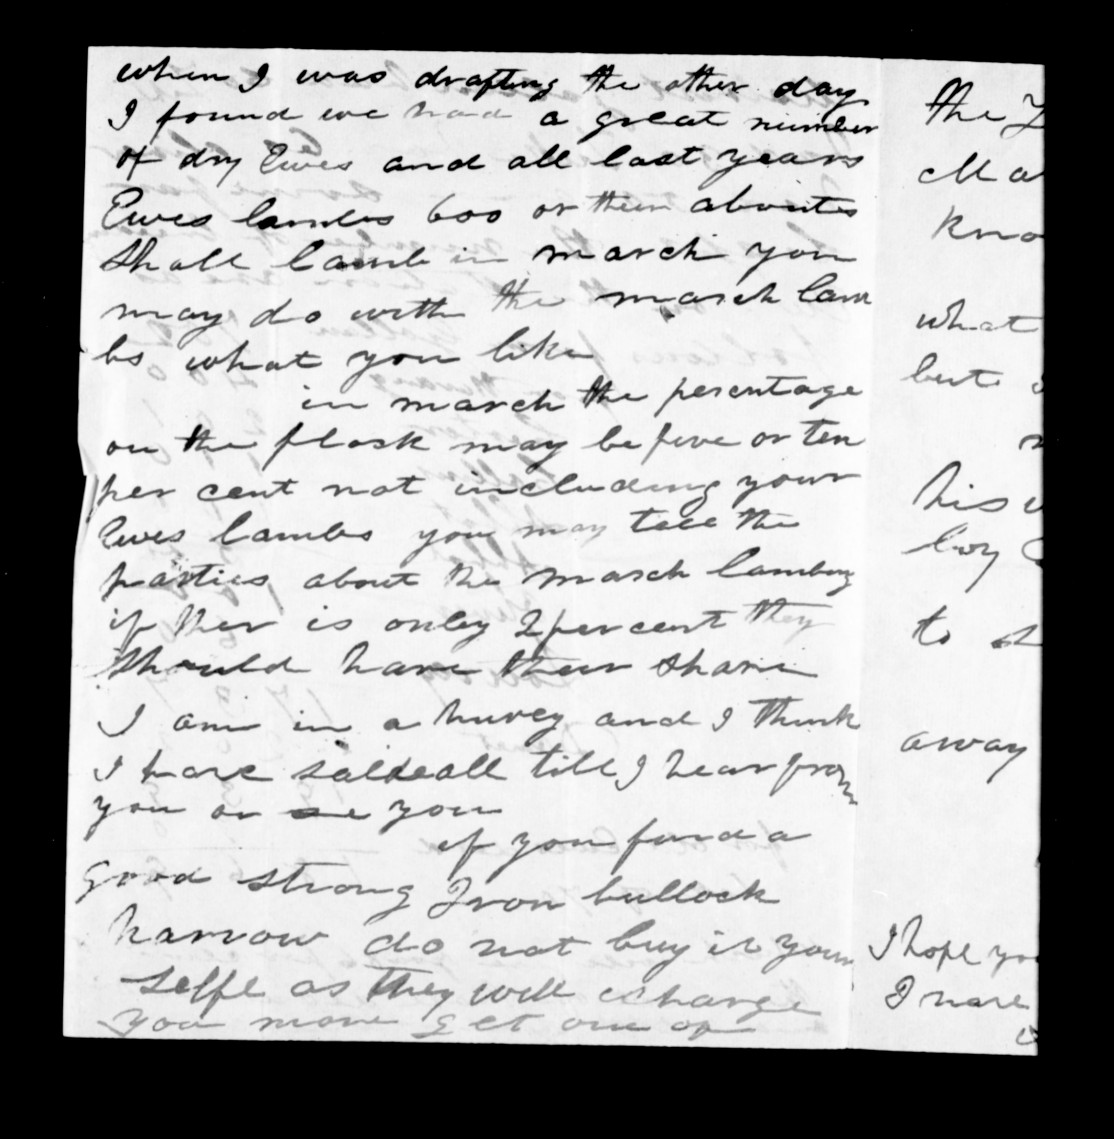 when I was drafting the other day
I found we had a great number
of dry Ewes and all last years
Ewes lambs 600 or their aboutes
Shall lamb in march you
may do with the march lam
bs what you like
in march the persentage
on the flosk may be five or ten
per cent not including your
Ewes lambs you may tell the
parties about the march lambing
if ther is only 2 per cent they
should have their share
I am in a hurey and I think
I have saide all till I hear from
you or see you
if you find a
good strong Iron bullock
harrow do not buy it your
selfe as they will charge
you more get one of
the
Ma
kno
what
but
his
boy
to
away
I hope yo
I have